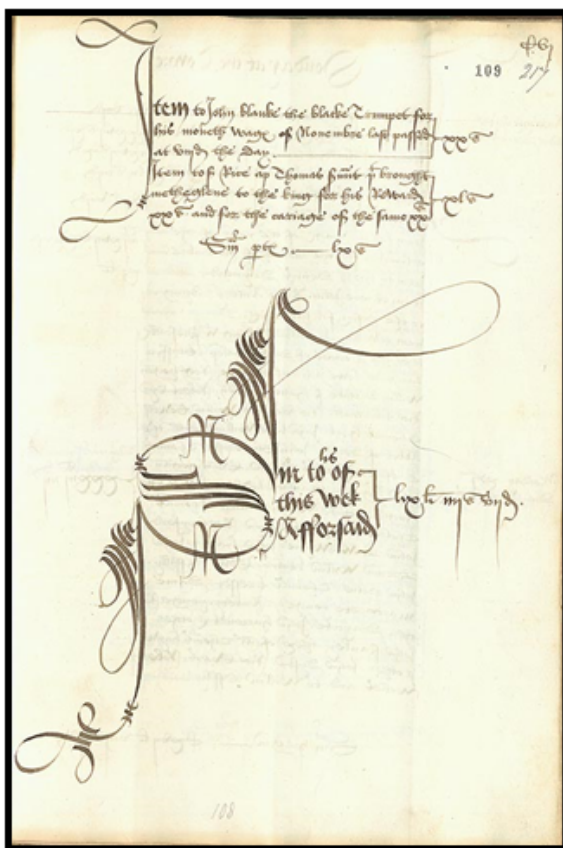 109
217
Item to John blanke the blacke Trumpet for
his moneth wages of Novembre last passed
at viijd the day xx s
Item to Rice ap Thomas brought
metheglene to the king for his Reward
xx s and for the cariage of the same xx s xl s
lx s
this wek
Afforsaid
108